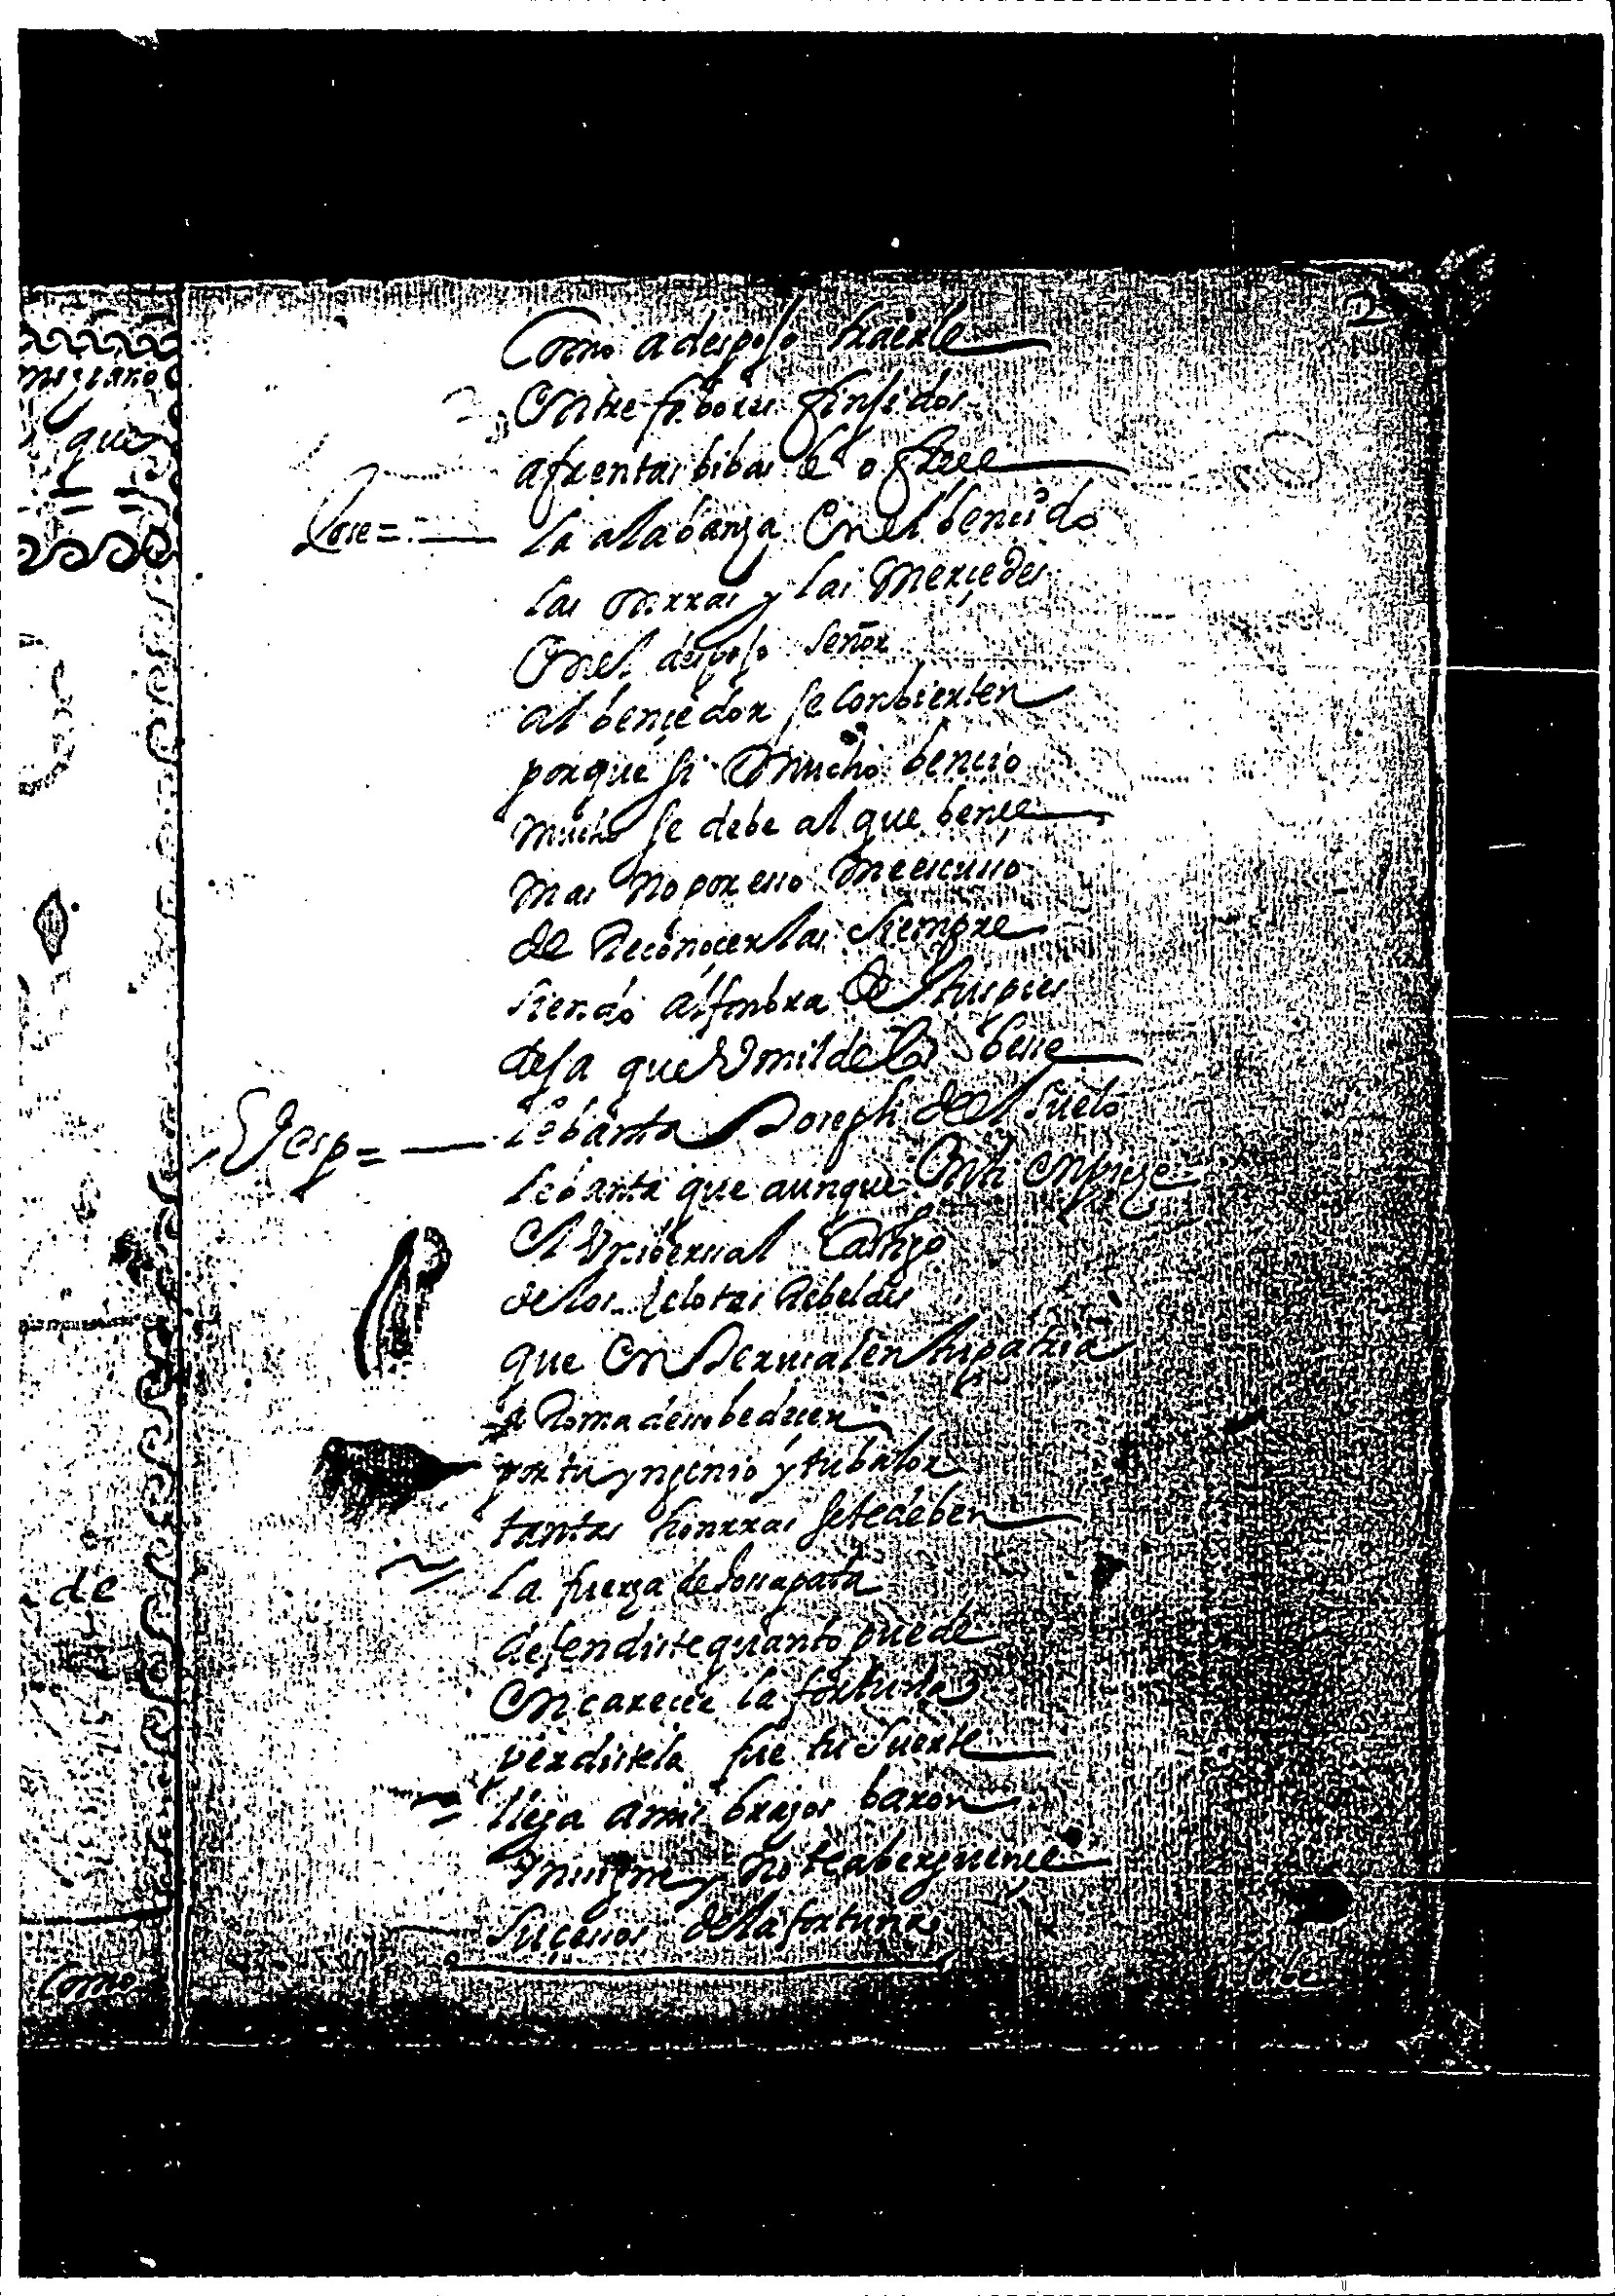 2
Como a despojo traerle
Entre fabores finjidos
afrentas bibas le ofrece
Jose = la alabanza En el bencido
las onrras y las Mercedes
En el despojo señor
al bencedor se conbierten
porque si Mucho bencio
Mucho se debe al que bence
Mas No por esso Me escusso
de Reconocerlas siempre
siendo alfonbra de tus pies
desa que Vmilde besse
Vesp = lebanta Joseph del suelo
lebanta que aunque En ti Enpieze
El Vnibersal Castigo
de los Rebeldes
que En Jerusalen tu patria
a Roma desobedecen
por tu yngenio y tu balor
tantas honrras se te deben
la fuerza de Jonapata
defendiste quanto puede
Encarecer la fortuna
perdistela fue tu suerte
llega a mis brazos baron
Ynsigne y No te aberguence
sucesos de la fortuna
que
de
Como